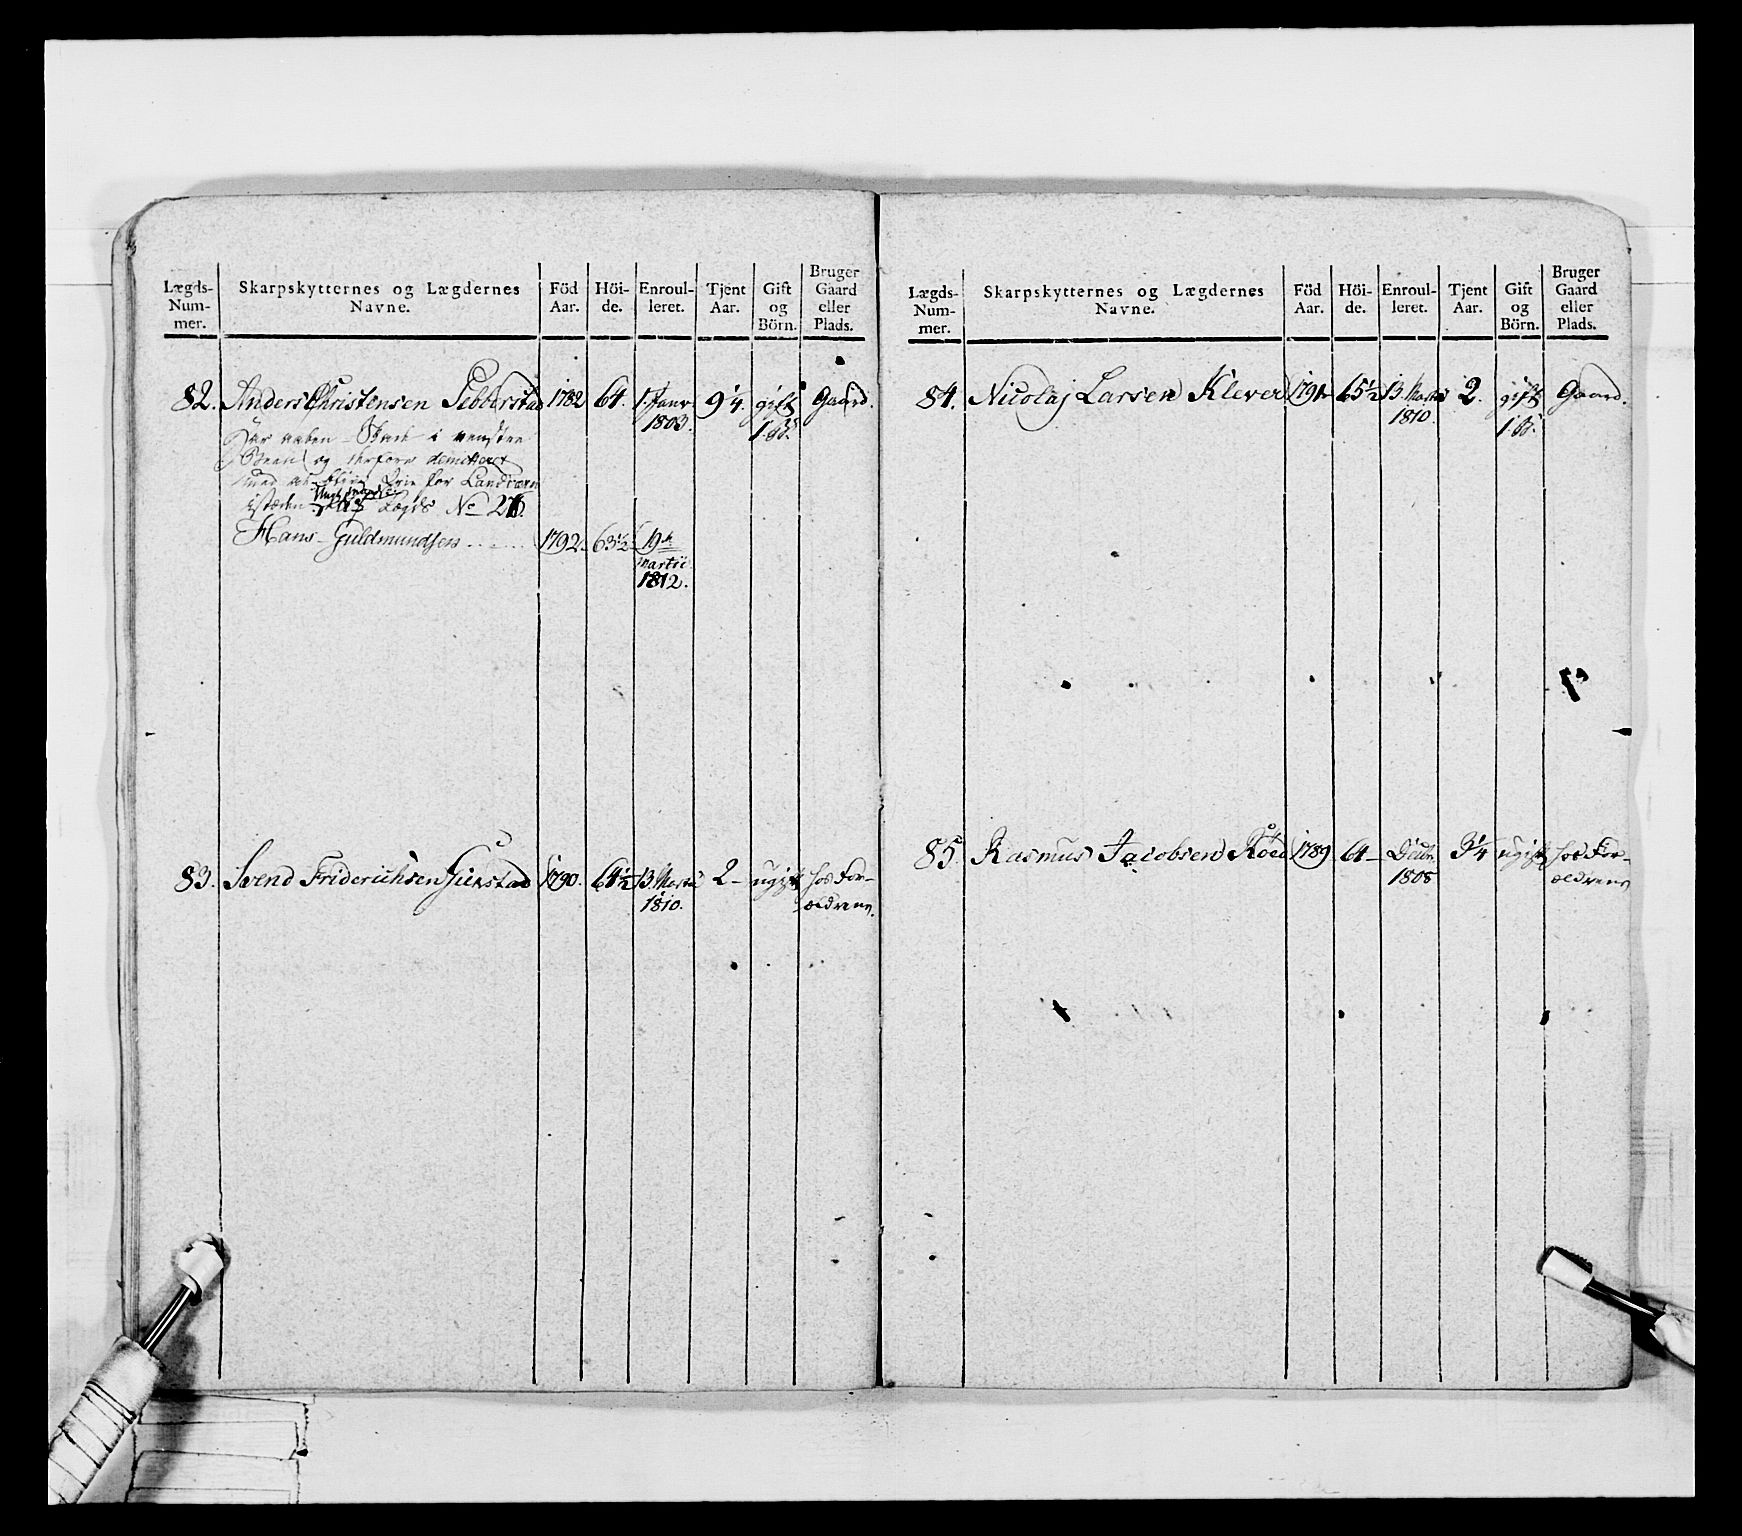 Lægds-Num-mer. Skarpskytternes og Lægdernes Navne. Föd Aar. Höi-de. Enroul-leret. Tjent Aar. Gift og Börn. Bruger Gaard eller Plads.
82. Anders Christensen Sebberstad 1782 64. 1. Janv 9 1/4. gift Gaard.
1803. 1. B.
Har aaben Skade i venstre
Been og derfore demitteret
istæden Lægds No 26.
Hans Guldmundsen 1792 63 1/2 19de
Martii
1812.
83. Svend Friderichsen Gierstad 1790. 64 1/2 13. Martii 2 - ugift hos For-
1810. ældrene.
Lægds-Num-mer. Skarpskytternes og Lægdernes Navne. Föd Aar. Höi-de. Enroul-leret. Tjent Aar. Gift og Börn. Bruger Gaard eller Plads.
84. Nicolaj Larsen Klever 1791 65 1/2 13. Martii 2. gift Gaard.
1810. 1. B.
85. Rasmus Jacobsen Röed 1789 64 - Decbr 3 1/4 ugift hos For-
1808 ældrene